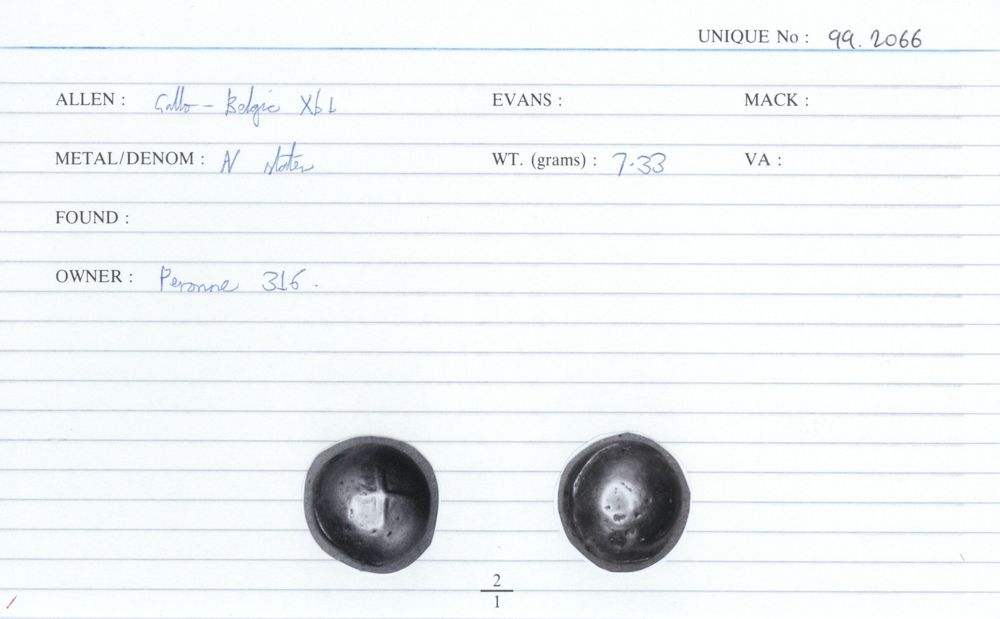 UNIQUE No : 99.2066
ALLEN : Gallo - Belgic Xb1 EVANS : MACK :
METAL/DENOM : N stater WT. (grams) : 7.33 VA :
FOUND :
OWNER : Peronne 316.
2
1